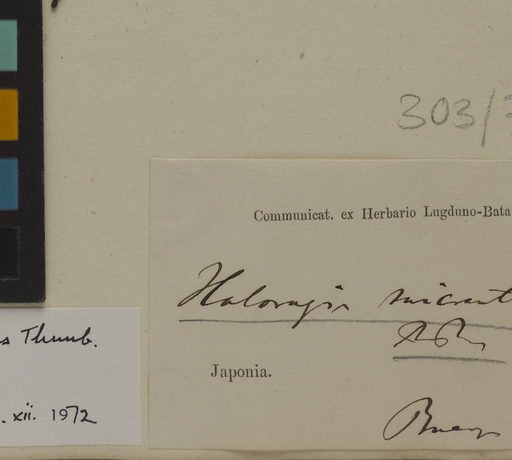 303/
Communicat. ex Herbario Lugduno-Bata
Haloragis micrant
R. Br.
Japonia.
s Thunb.
. xii. 1972